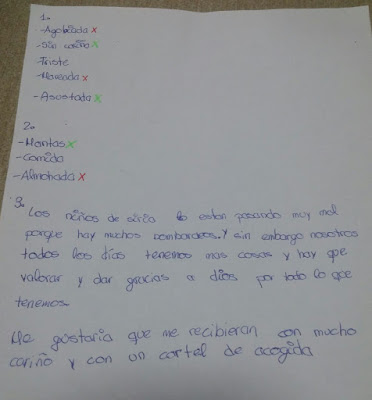 1.
-Agobiada x
-Sin cariño x
-Triste
-Mareada x
-Asustada x
2.
-Mantas x
-Comida
-Almohada x
3. Los niños de siria lo estan pasando muy mal
porque hay muchos bombardeos. Y sin embargo nosotros
todos los días tenemos mas cosas y hay que
valorar y dar gracias a dios por todo lo que
tenemos.
Me gustaria que me recibieran con mucho
cariño y con un cartel de acogida